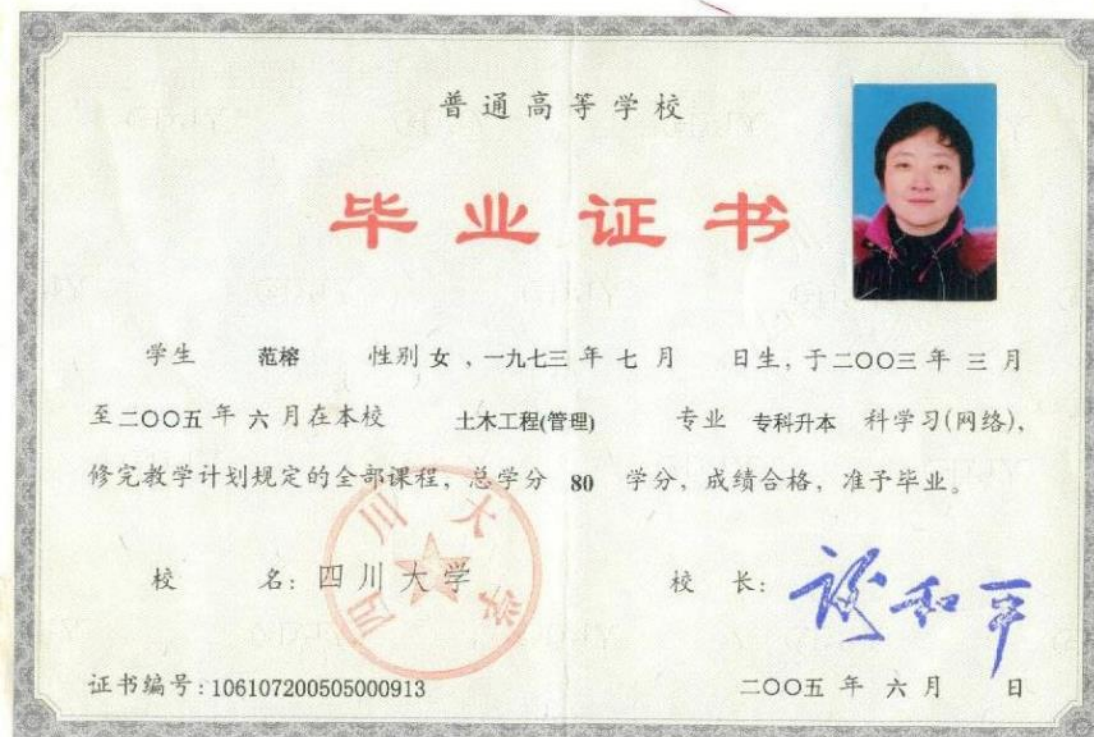 普通高等学校
毕业证书
学生 范榕 性别 女 ，一九七三 年 七 月 日生，于二〇〇三 年 三 月
至二〇〇五 年 六 月在本校 土木工程(管理) 专业 专科升本 科学习(网络)，
修完教学计划规定的全部课程，总学分 80 学分，成绩合格，准予毕业。
四川大学
校 名：四川大学 校 长：谢和平
证书编号：106107200505000913 二〇〇五 年 六 月 日